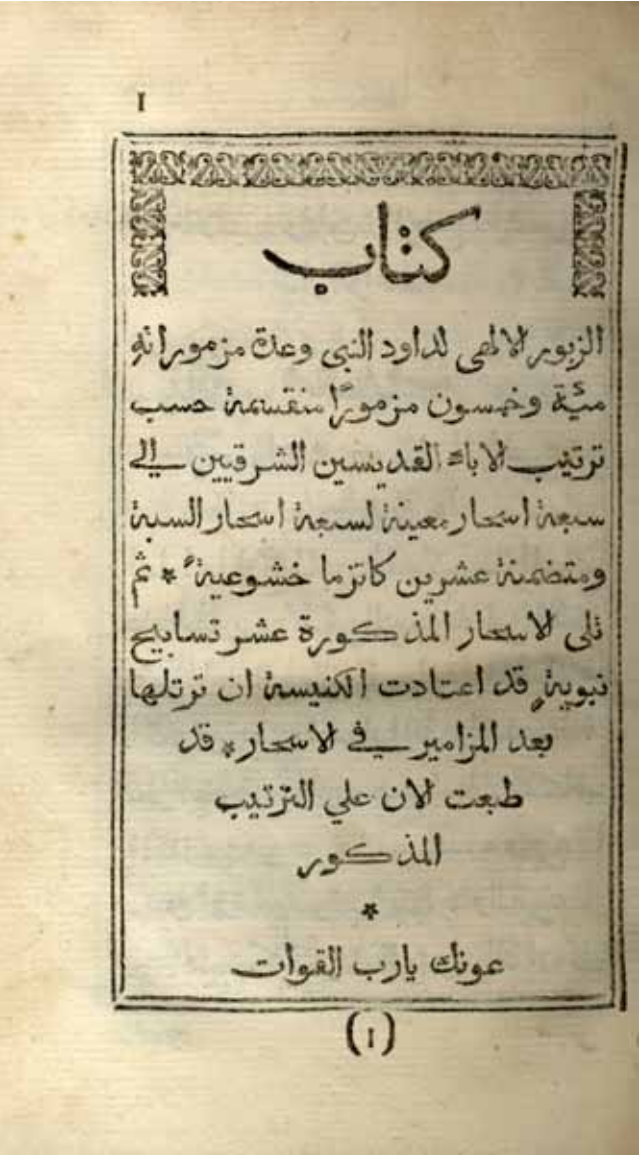 I
كتاب
الزبور الالهي لداود النبي وعدة مزموراته
مئة وخمسون مزمورًا منقسمة حسب
ترتيب الاباء القديسين الشرقيين الي
سبعة اسحار معينة لسبعة اسحار السبة
ومتضمنة عشرين كاتزما خشوعية * ثم
تلى الاسحار المذكورة عشر تسابيح
نبوية قد اعتادت الكنيسة ان ترتلها
بعد المزامير في الاسحار * قد
طبعت الان علي الترتيب
المذكور
*
عونك يارب القوات
(I)